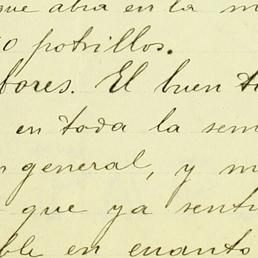 que abra en la
potrillos.
bores. El buen
en toda la sem
general, y m
que ya sent
ble en cuanto